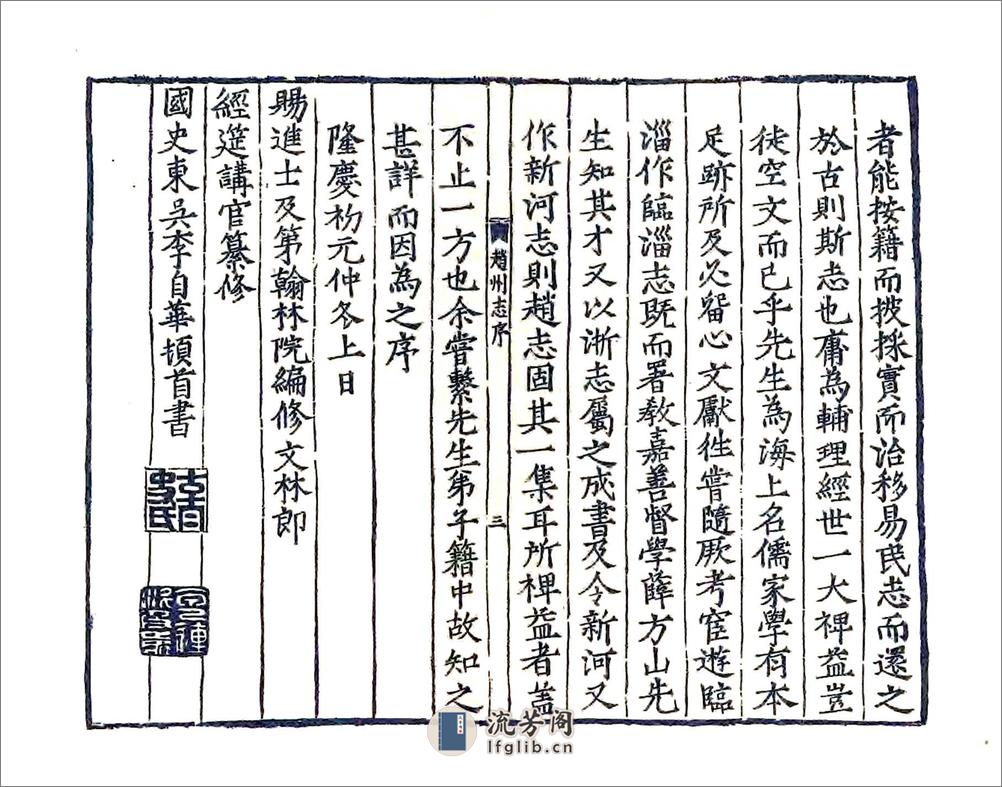 者能按籍而披採實而治移易民志而還之
於古則斯志也庸為輔理經世一大裨益豈
徒空文而已乎先生為海上名儒家學有本
足跡所及必留心文獻徃嘗隨厥考宦遊臨
淄作臨淄志既而署教嘉善督學薛方山先
生知其才又以浙志屬之成書及令新河又
作新河志則趙志固其一集耳所裨益者盖
趙州志序
三
不止一方也余嘗繫先生弟子籍中故知之
甚詳而因為之序
隆慶初元仲冬上日
賜進士及第翰林院編修文林郎
經筵講官纂修
國史東吳李自華頓首書
流芳阁
lfglib.cn